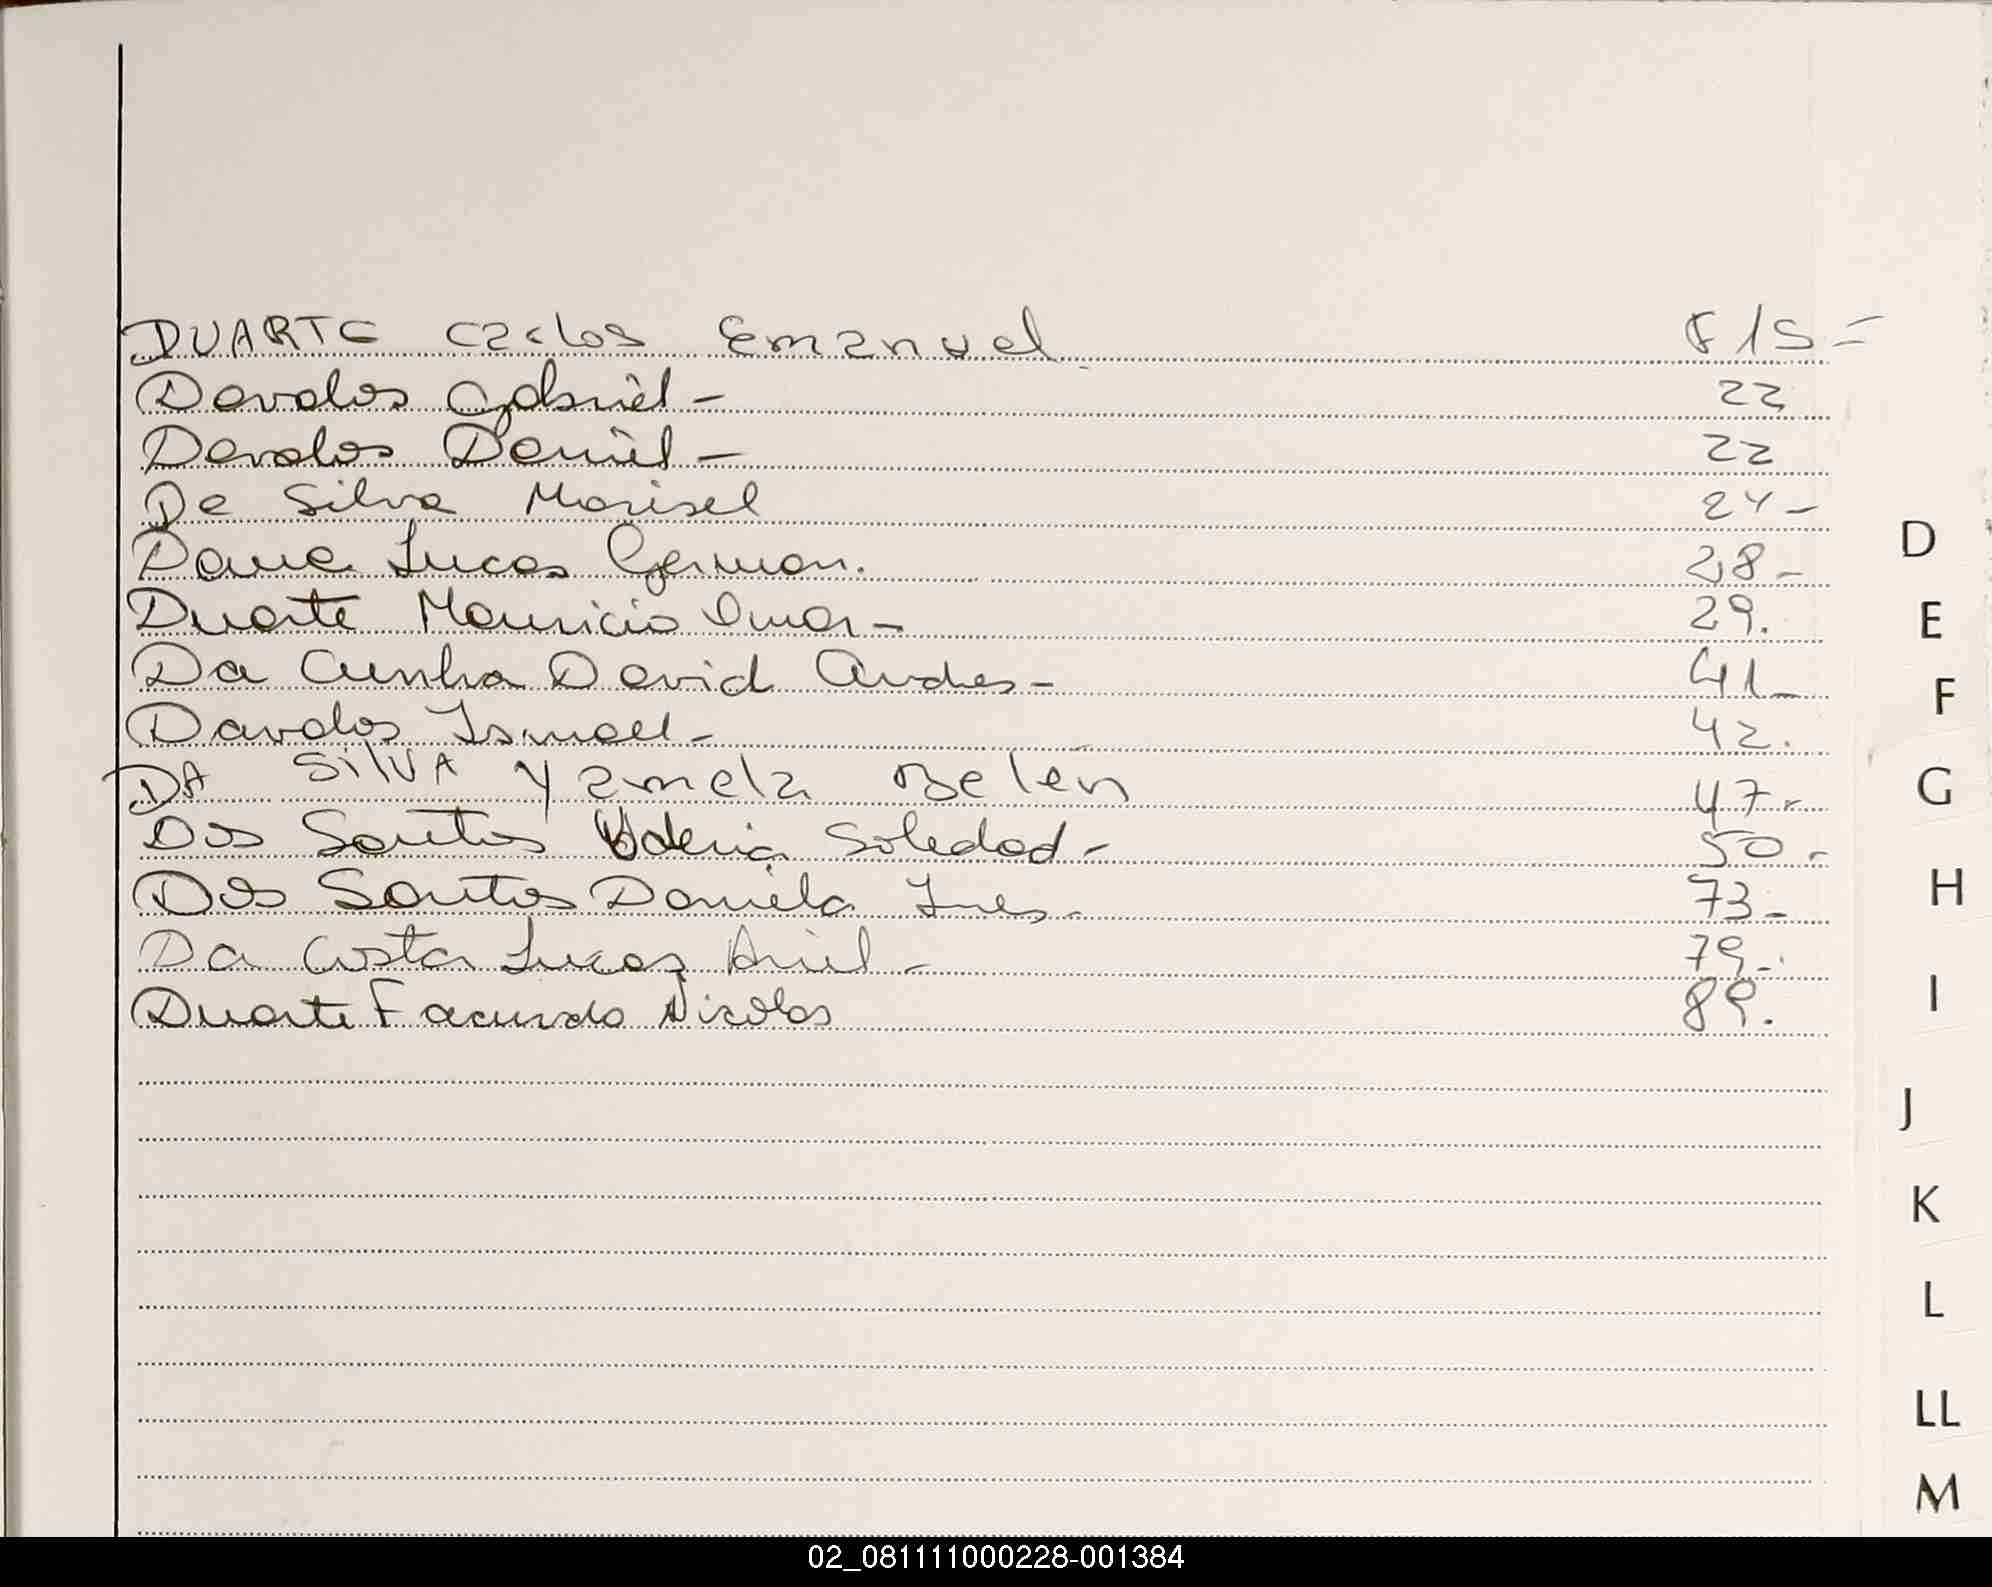 DUARTE Carlos Emanuel F 15 =
Davalos Gabriel - 22
Davalos Daniel - 22
Da Silva Marisel 24 -
Lucas German. 28 -
Duarte Mauricio Omar - 29.
Da Cunha David Andres - 41 -
Davalos Ismael - 42.
DA SilVA Yamela Belén 47 -
Dos Santos Valeria Soledad - 50 -
Dos Santos Daniela Ines - 73 -
Da Costa Lucas Ariel - 79 -
Duarte Facundo Nicolas 89.
D
E
F
G
H
I
J
K
L
LL
M
02_081111000228-001384